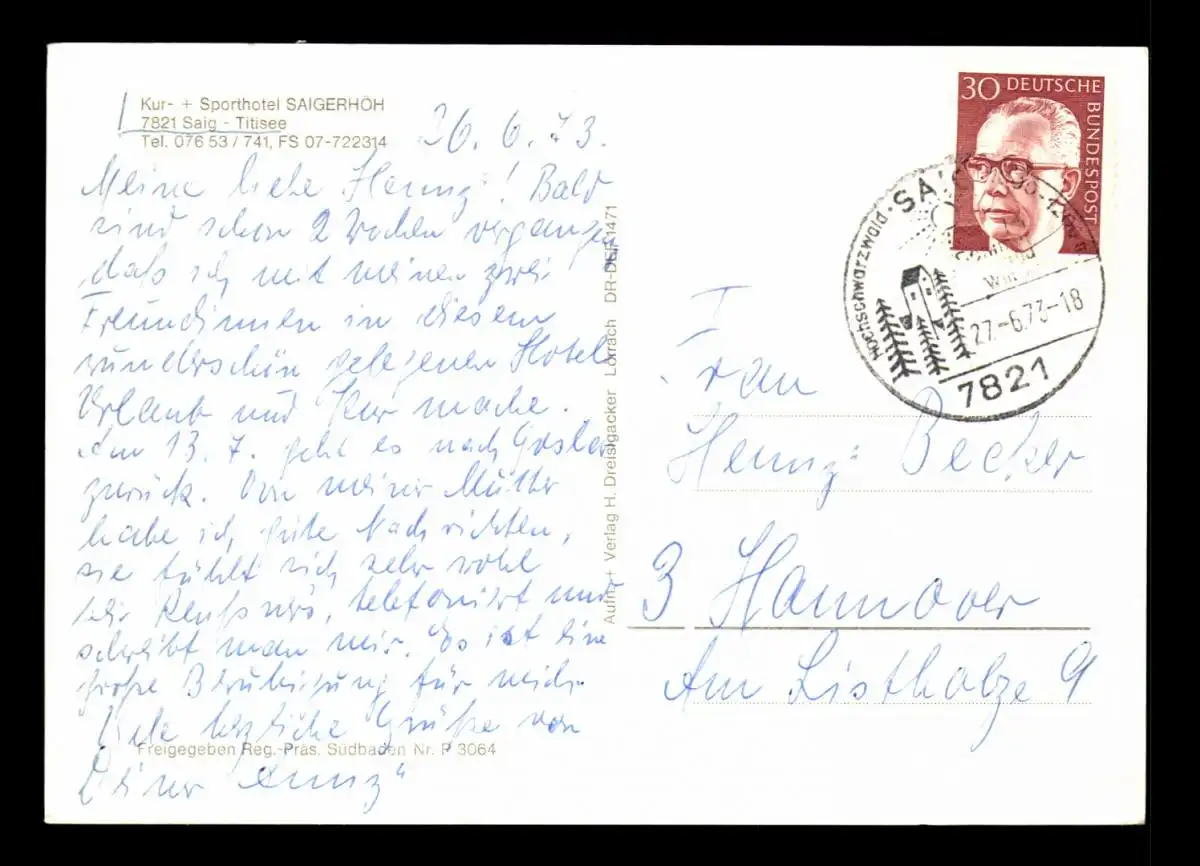 Kur- + Sporthotel SAIGERHÖH
7821 Saig - Titisee
Tel. 076 53 / 741, FS 07-722314
26. 6. 73.
Meine liebe Hennz! Bald
sind schon 2 Wochen vergangen,
daß ich mit meinen zwei
Freundinnen in diesem
wunderschön gelegenen Hotel
Urlaub und Kur mache.
Am 13. 7. geht es nach Goslar
zurück. Von meiner Mutter
habe ich gute Nachrichten,
sie fühlt sich sehr wohl
bei telefoniert und
schreibt man mir. Es ist eine
große Beruhigung für mich.
Viele herzliche Grüße von
Deiner
Freigegeben Reg.-Präs. Südbaden Nr. P 3064
Aufn. + Verlag H. Dreisigacker Lörrach DR-DER 1471
30 DEUTSCHE
BUNDESPOST
Hochschwarzwald · SAIG
27.-6.73-18
7821
Frau
Hennz: Becker
3 Hannover
Am Listholze 9